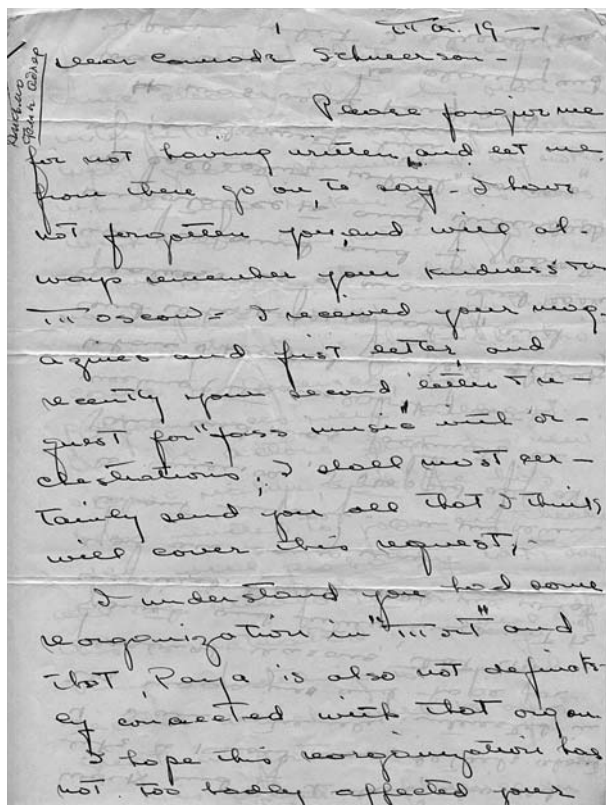 1
Mar. 19 —
Письмо
Фани Адлер
Dear Comrade Schneerson —
Please forgive me
for not having written, and let me
from there go on, to say — I have
not forgotten you, and will al-
ways remember your kindness in
Moscow — I received your mag-
azines and first letter, and
recently your second letter & re-
quest for "jass music" with or-
chestrations; I shall most cer-
tainly send you all that I think
will cover this request, —
I understand you had some
reorganization in "Mort" and
that Raya is also not definite-
ly connected with that organ
I hope this reorganization has
not too badly affected your